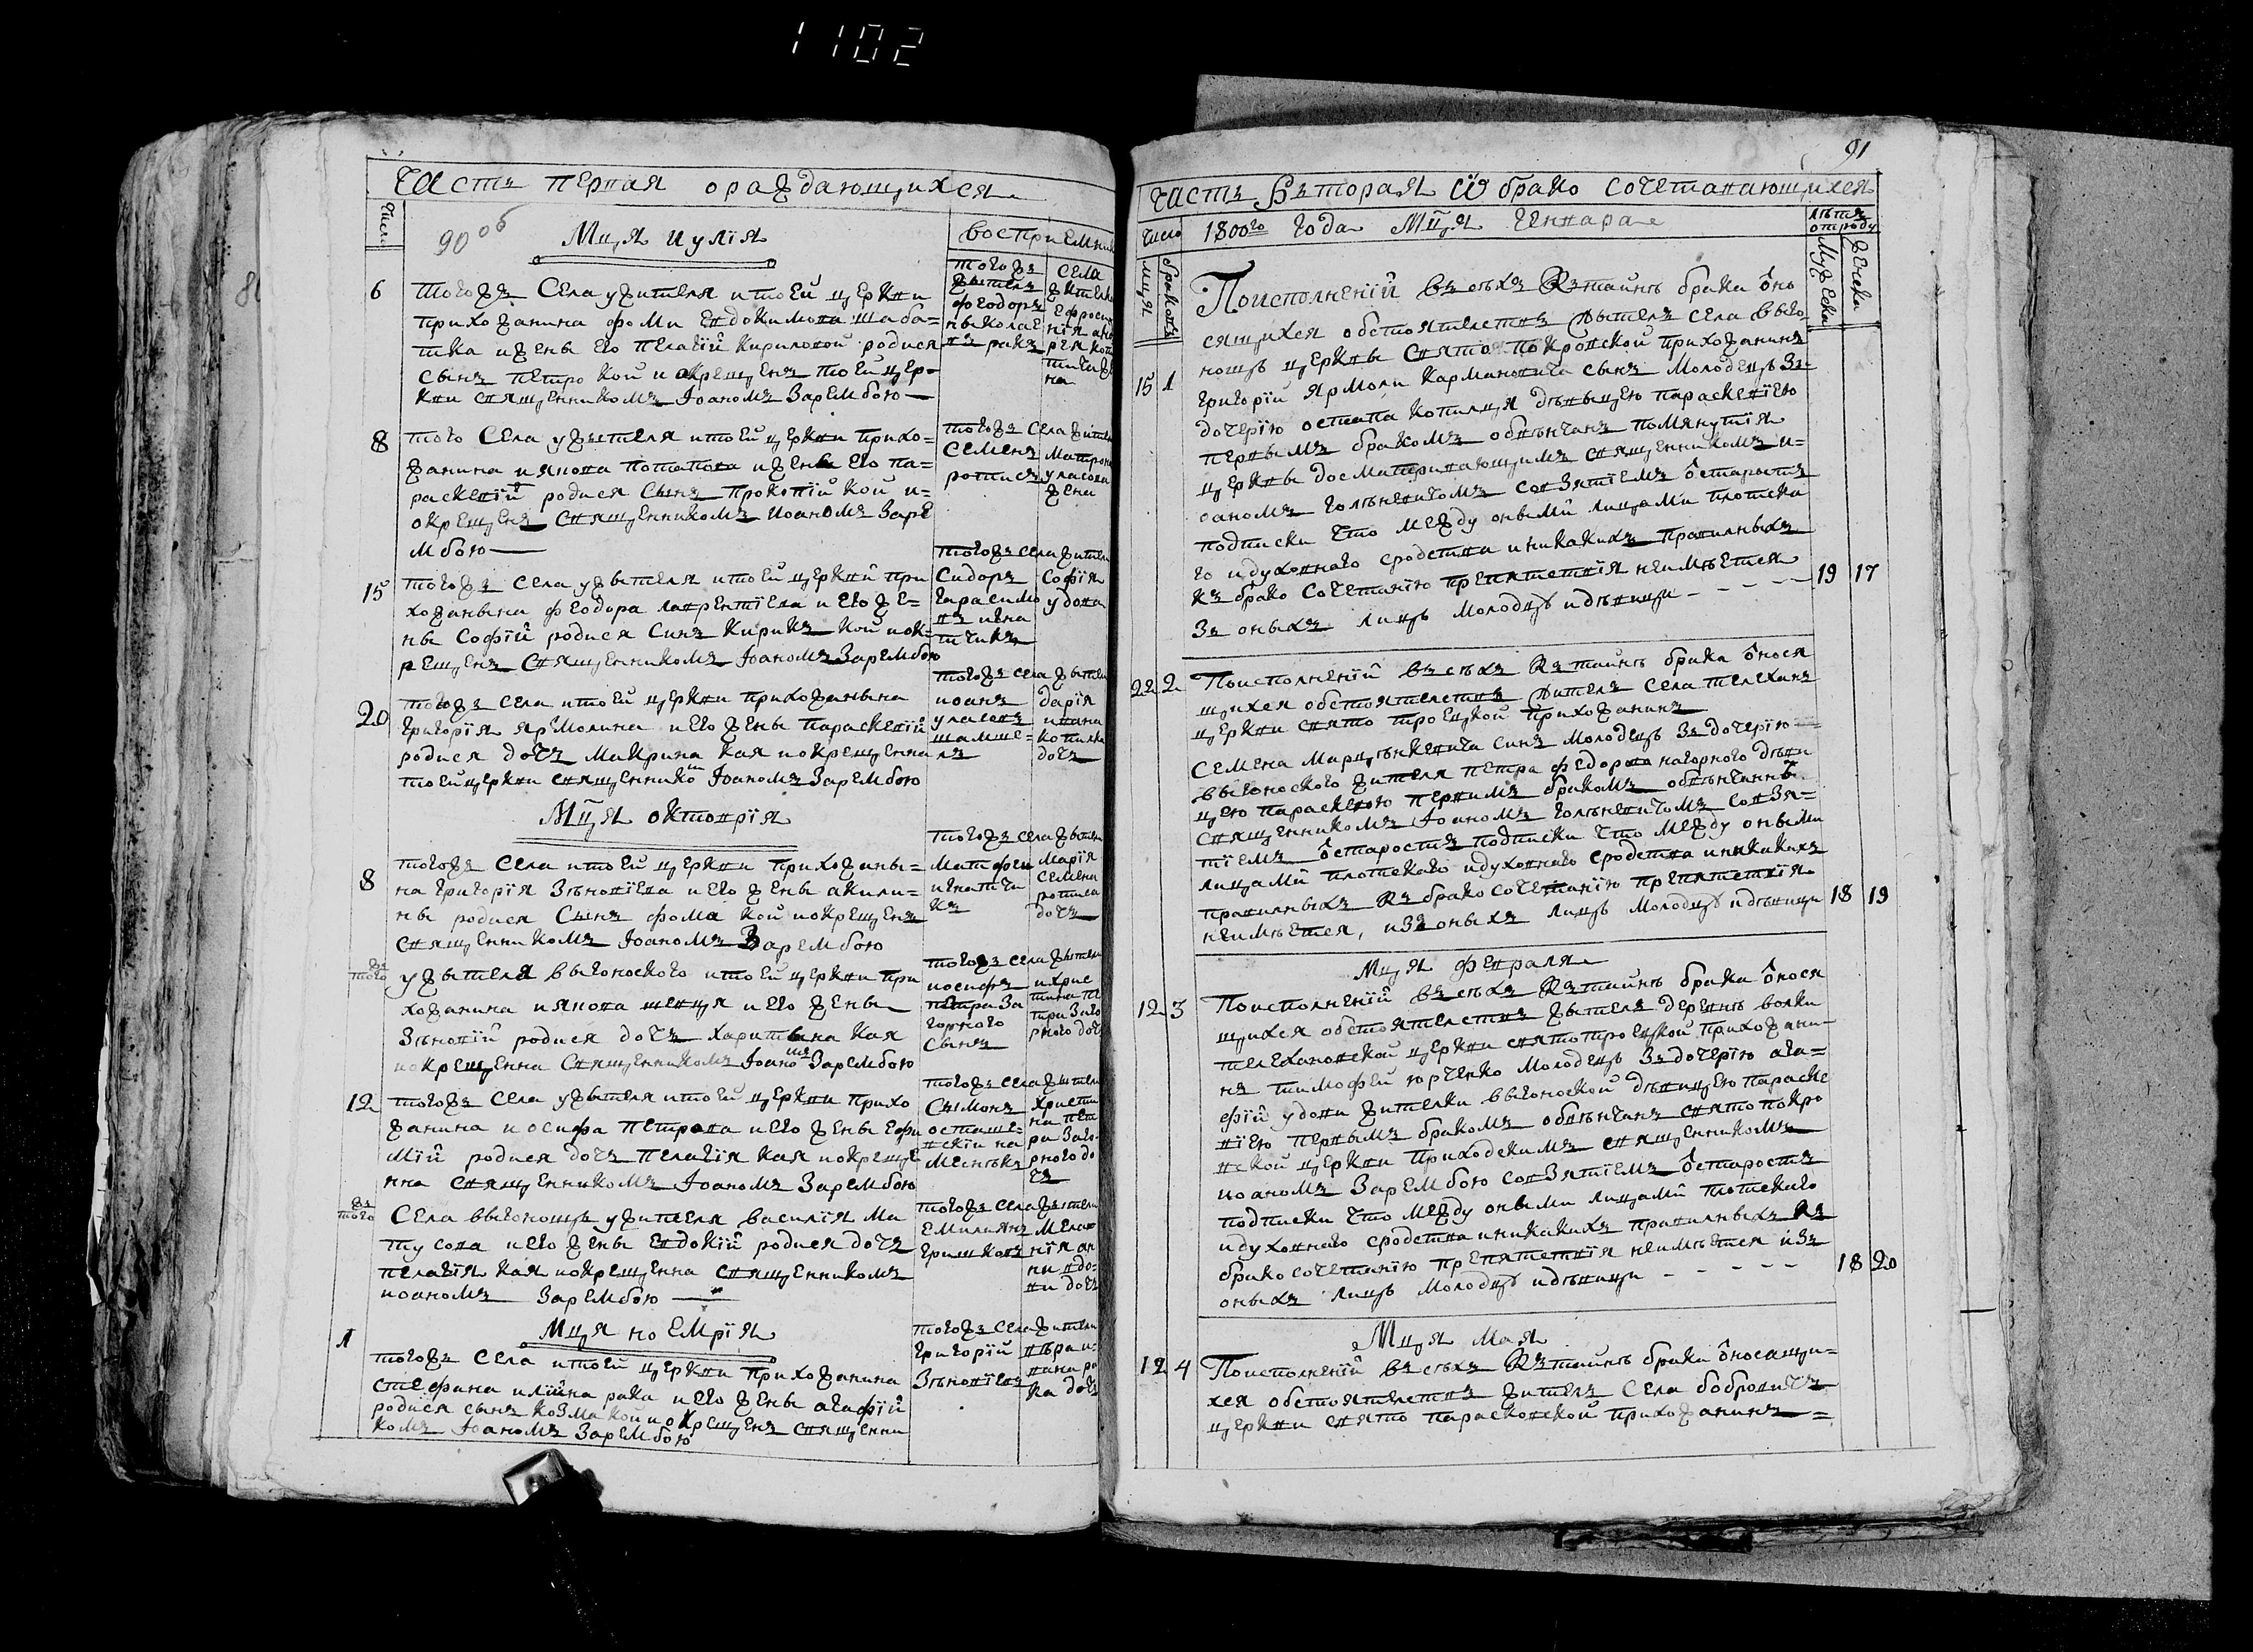 1102
Часть первая о раждающихся
Число
90 об
Мця Иулія
воспріемник
6
тогожъ Села ужителя итоей церкви
прихожанина фоми Евдокимова шаба=
тика иЖены его пелагіи кириловой родися
сынъ петро кой иокрещенъ тоей цер=
кви священникомъ Іоаномъ Зарембою
тогожъ
жители
феодоръ
николае
въ ракъ
села
жителк
8
того Села ужителя итоей церкви прихо=
жанина иякова потапова иЖены его па=
раскевіи родися Сынъ прокопій кой и=
окрещенъ священникомъ Иоаномъ Заре
мбою
тогожъ села жители
Семенъ
ротисъ
Матрона
уласова
жена
15
тогожъ Села ужителя итоей церкви при
хожанына феодора лаврентіева иего же=
ны Софіи родися Синъ Кирикъ кой иок=
рещенъ священникомъ Іоаномъ Зарембою
тогожъ села жители
Сидоръ
гарасимо
въ игна
тичикъ
Софія
удова
20
тогожъ села итоей церкви прихожаныны
Григорія ярмолина иего жены параскевіи
родися дочъ Макрина кая иокрещенна
тоейцеркви священнико Іоаномъ Зарембою
тогожъ села жители
иоанъ
уласовъ
дарія
ивана
дочъ
Мця октоврія
8
тогожъ Села итоей церкви прихожаны=
на григорія Зѣновіева иего жены акили=
ны родися Сынъ фома кой иокрещенъ
священникомъ Іоаномъ Зарембою
тогожъ села жители
Матфей
игнатичи
къ
Марія
Семена
ротиса
дочъ
тогожъ
ужителя выгоноского итоей церкви при
хожанина иякова шевця иего жены
Зѣновіи родися дочъ харитына кая
иокрещенна Священникомъ Іоано Зарембою
тогожъ села жители
иосифъ
петра За
горного
Сынъ
ихрис
тина пе
тра Заго
рного доч
12
тогожъ Села ужителя итоей церкви прихо
жанина иосифа петрова иего жены ефи
міи родися дочъ пелагія кая иокреще
нна священникомъ Іоаномъ Зарембою
тогожъ села жители
Сымонъ
осташе=
вскій на
Мѣснѣкъ
христи
на пет
ра Заго
рного до
чъ
тогожъ
Села выгонощъ ужителя василія Ма
тусова иего жены Евдокіи родися дочъ
пелагія кая иокрещенна священникомъ
иоаномъ Зарембою
тогожъ села жители
Емиліянъ
гришковъ
Мела
нія ан
ни вдо=
ви дочъ
Мця ноемврія
1
тогожъ Села итоей церкви прихожанина
стефана иліина рака иего жены агафіи
родися сынъ козма кой иокрещенъ священни
комъ Іоаномъ Зарембою
тогожъ села жители
Григорій
Зѣновіевъ
ка дочъ
91
Часть Вторая о брако сочетавающихся
Число
1800го Года Мця Генвара
лѣта
отроду
мця
браковъ
Мужеска
Женска
15 1
Поисполненіи всѣхъ къ тайнѣ брака оно
сящихся обстоятелствъ житель села выго
нощъ церквы свято покровской прихожанинъ
григорій ярмоли Кармановича сынъ Молодецъ Зъ
дочерію остапа котилця дѣвыцею параскевіею
первымъ бракомъ обвѣнчанъ помянутія
церквы досматривающимъ священникомъ и=
оаномъ Голѣневичомъ совзятіемъ остаростъ
подписки что между онымй лицами плотска
го идуховнаго сродства иникакихъ правилныхъ
къ брако Сочетанію препятствія неимѣется
Зъ оныхъ лицъ молодцъ идѣвици - - - -
19 17
22 2
Поисполненіи всѣхъ къ тайнѣ брака онося
щихся обстоятелствъ житель Села телеханъ
церкви свято троецкой прихожанинъ
Семена Марцѣнкевича синъ молодецъ Зъ дочерію
выгоноского жителя петра федорова нагорного дѣви
цею параскевою первимъ бракомъ обвѣнчаннъ
священникомъ Іоаномъ голѣневичомъ совзя=
тіемъ остаростъ подписки что между оными
лицами плотского идуховнаго сродства иникакихъ
правилныхъ къ брако сочетанію препятствія
неимѣется, изъ оныхъ лицъ молодцъ идѣвици
18 19
Мця февраля
12 3
Поисполненіи всѣхъ къ тайнѣ брака онося
щихся обстоятелствъ житель деревнѣ волки
телехановской церкви святотроецкой прихожани=
нъ тимофей юрченко Молодецъ Зъ дочерію ага=
фіи удови жителки выгоноской дѣвицею параске
віею первымъ бракомъ обвѣнчанъ святопокро
вской церкви Приходскимъ священникомъ
иоаномъ Зарембою совзятіемъ остаростъ
подписки что между оными лицами плотского
идуховнаго сродства иникакихъ правилныхъ къ
брако сочетанію препятствія неимѣется изъ
оныхъ лицъ молодцъ идѣвици - - - - -
18 20
Мця Мая
12 4
Поисполненіи всѣхъ къ тайнѣ брака оносящи=
хся обстоятелствъ житель Села бобровичъ
церкви свято парасковской прихожанинъ =